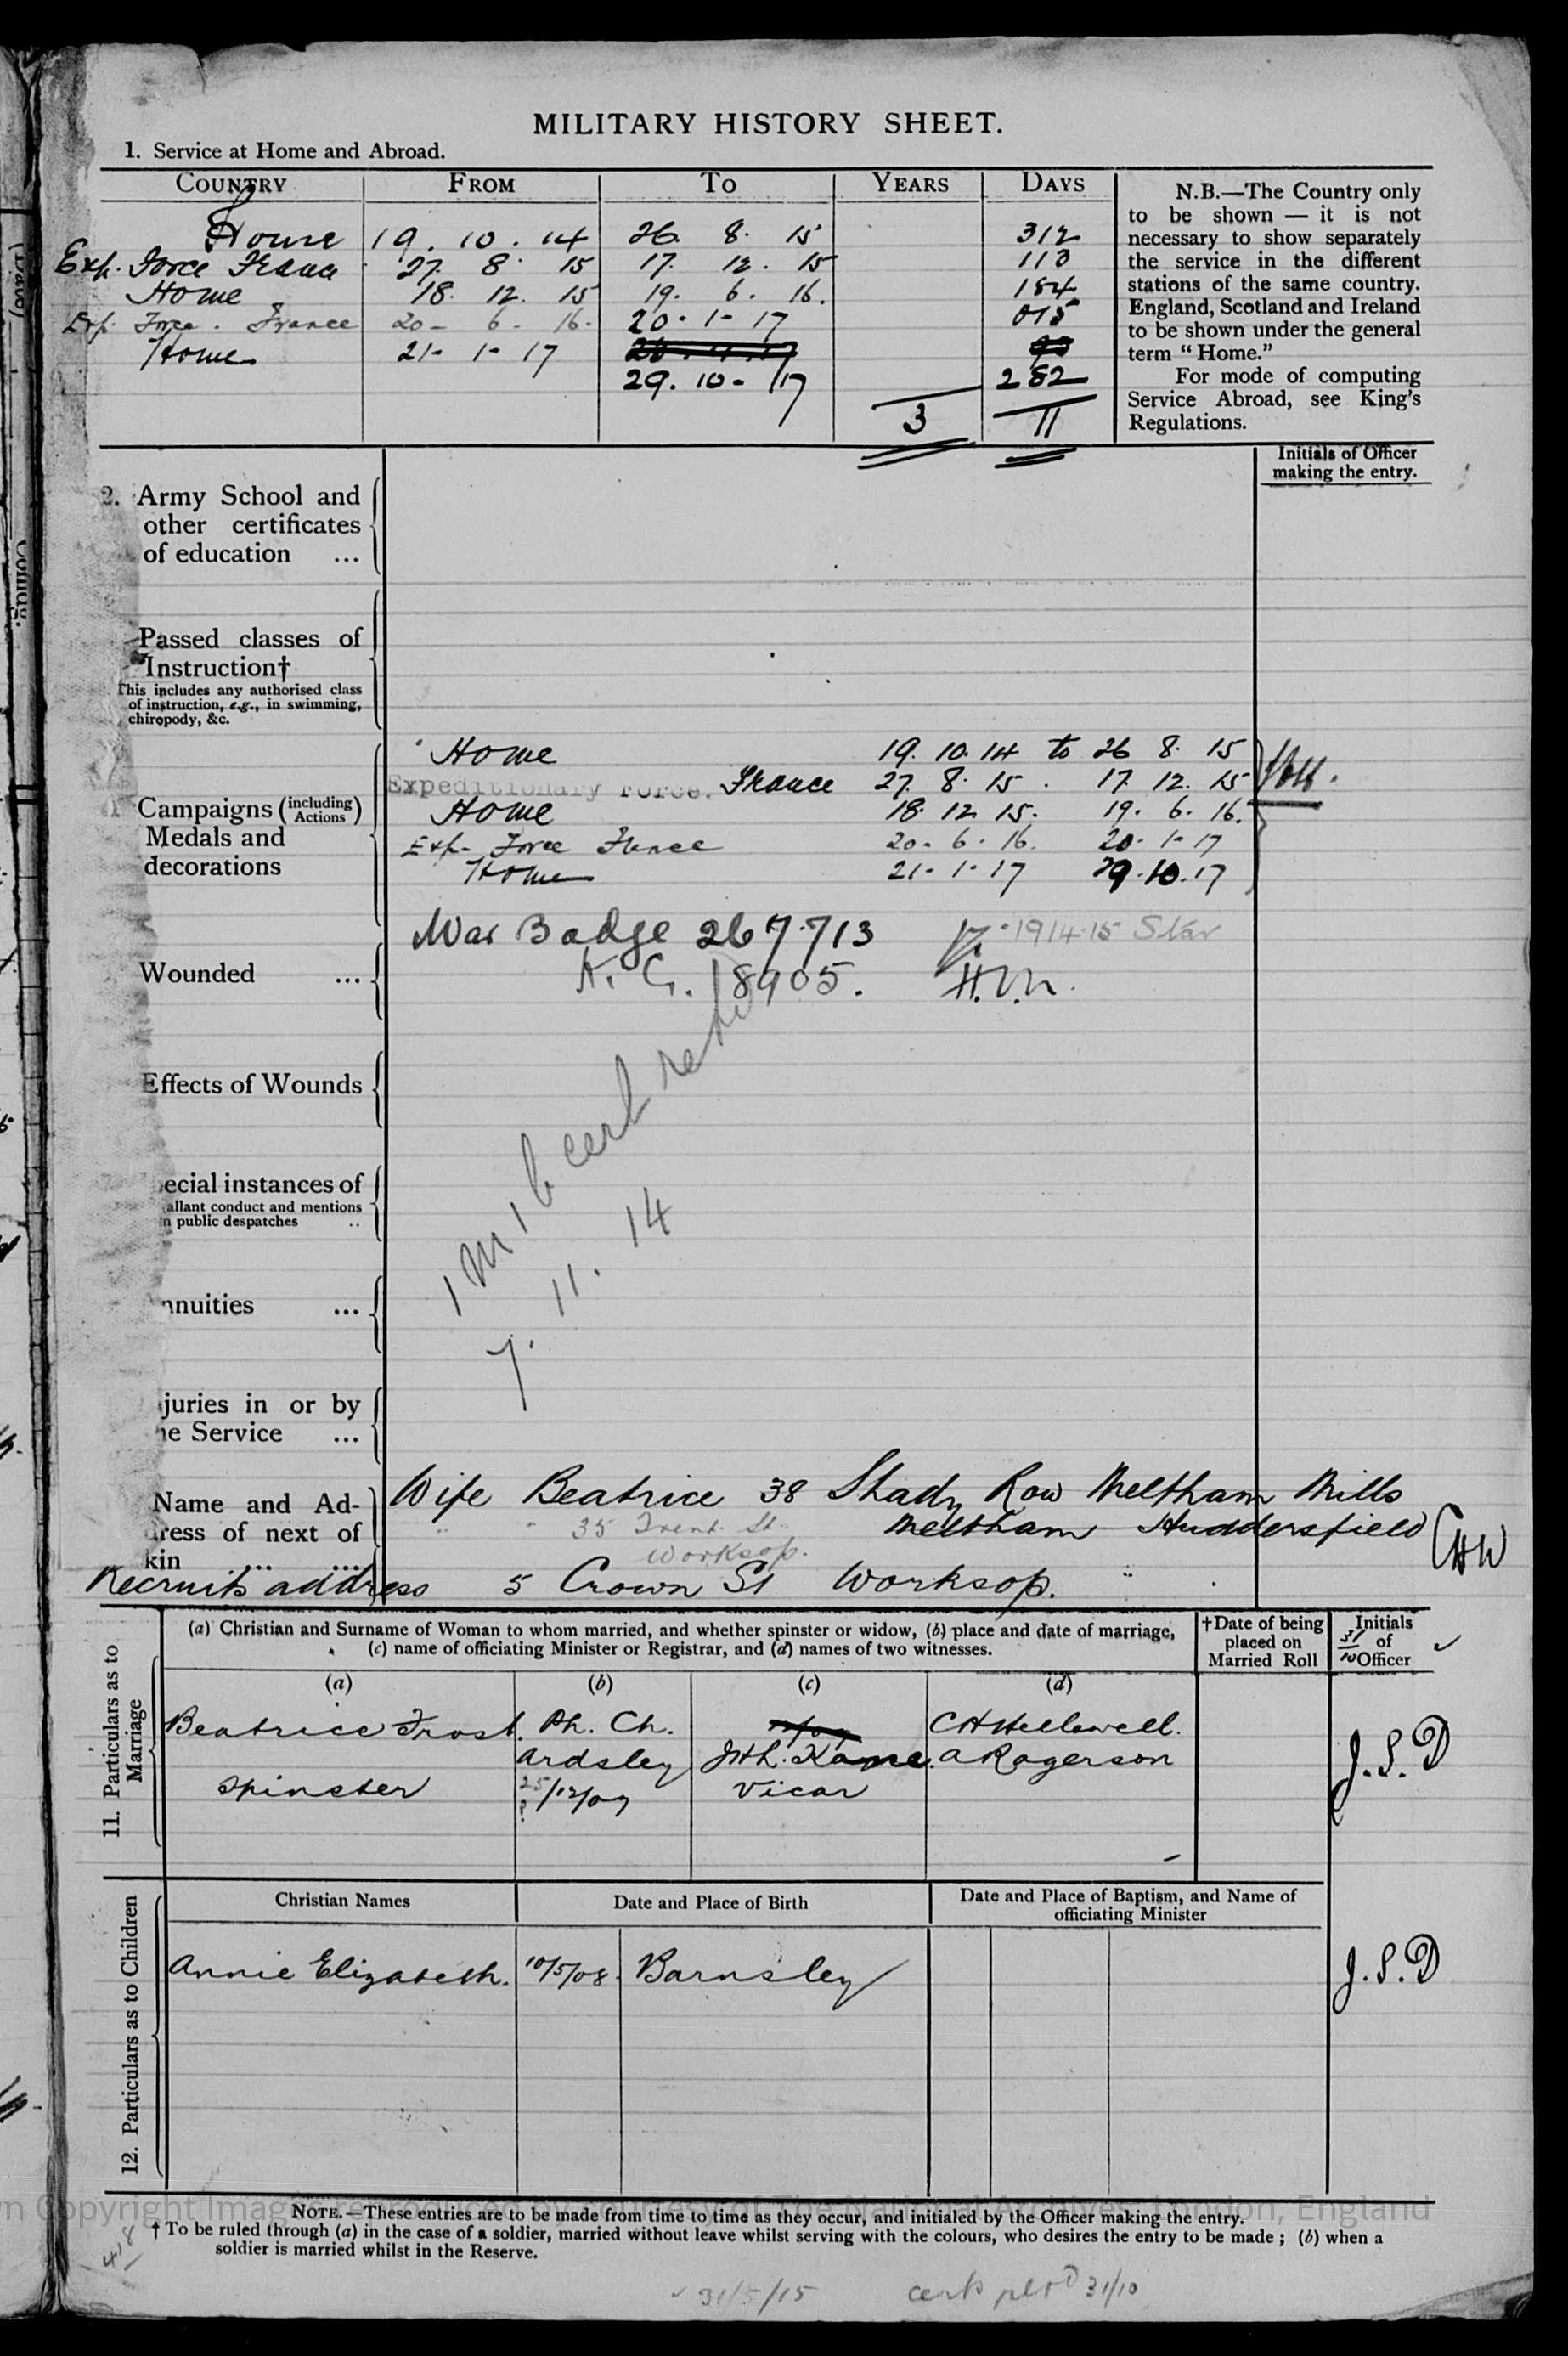 MILITARY HISTORY SHEET.
1. Service at Home and Abroad.
COUNTRY FROM TO YEARS DAYS
Home 19. 10. 14 26. 8. 15 312
Exp. Force France 27. 8. 15 17. 12. 15 113
Home 18. 12. 15 19. 6. 16. 184
Exp. Force. France 20- 6- 16. 20- 1- 17
Home 21- 1- 17
29. 10- 17 282
3 11
N.B.—The Country only
to be shown — it is not
necessary to show separately
the service in the different
stations of the same country.
England, Scotland and Ireland
to be shown under the general
term “ Home.”
For mode of computing
Service Abroad, see King's
Regulations.
Initials of Officer
making the entry.
2. Army School and
other certificates
of education ...
Passed classes of
Instruction†
This includes any authorised class
of instruction, e.g., in swimming,
chiropody, &c.
Campaigns (including Actions)
Medals and
decorations
Home 19. 10. 14 to 26 8. 15
Expeditionary Force. France 27. 8. 15. 17. 12. 15
Home 18. 12. 15. 19. 6. 16.
Exp- Force France 20- 6- 16. 20- 1- 17
Home 21- 1- 17 29. 10. 17
War Badge 267713 1914-15 Star
Wounded ...
K. C. 18905. H.V.N.
Effects of Wounds
1 M 1 b cert retd
7. 11. 14
ecial instances of
allant conduct and mentions
n public despatches ..
nnuities ...
juries in or by
he Service ...
Name and Ad-
dress of next of
kin ... ...
Wife Beatrice 38 Shady Row Meltham Mills
" " 35 Trent St. Meltham Huddersfield
Worksop.
CHW
Recruits address 5 Crown St Worksop. "
11. Particulars as to
Marriage
(a) Christian and Surname of Woman to whom married, and whether spinster or widow, (b) place and date of marriage,
(c) name of officiating Minister or Registrar, and (d) names of two witnesses.
†Date of being
placed on
Married Roll
Initials
of
Officer
31/10
(a) (b) (c) (d)
Beatrice Frost. Ph. Ch. C H Hellewell.
Ardsley A Rogerson
Spinster 25/12/07 Vicar
?
J.S.D
12. Particulars as to Children
Christian Names Date and Place of Birth
Date and Place of Baptism, and Name of
officiating Minister
Annie Elizabeth. 10/5/08. Barnsley
J.S.D
n Copyright Images reproduced by courtesy of The National Archives, London, England
NOTE.—These entries are to be made from time to time as they occur, and initialed by the Officer making the entry.
† To be ruled through (a) in the case of a soldier, married without leave whilst serving with the colours, who desires the entry to be made ; (b) when a
soldier is married whilst in the Reserve.
31/5/15 31/10